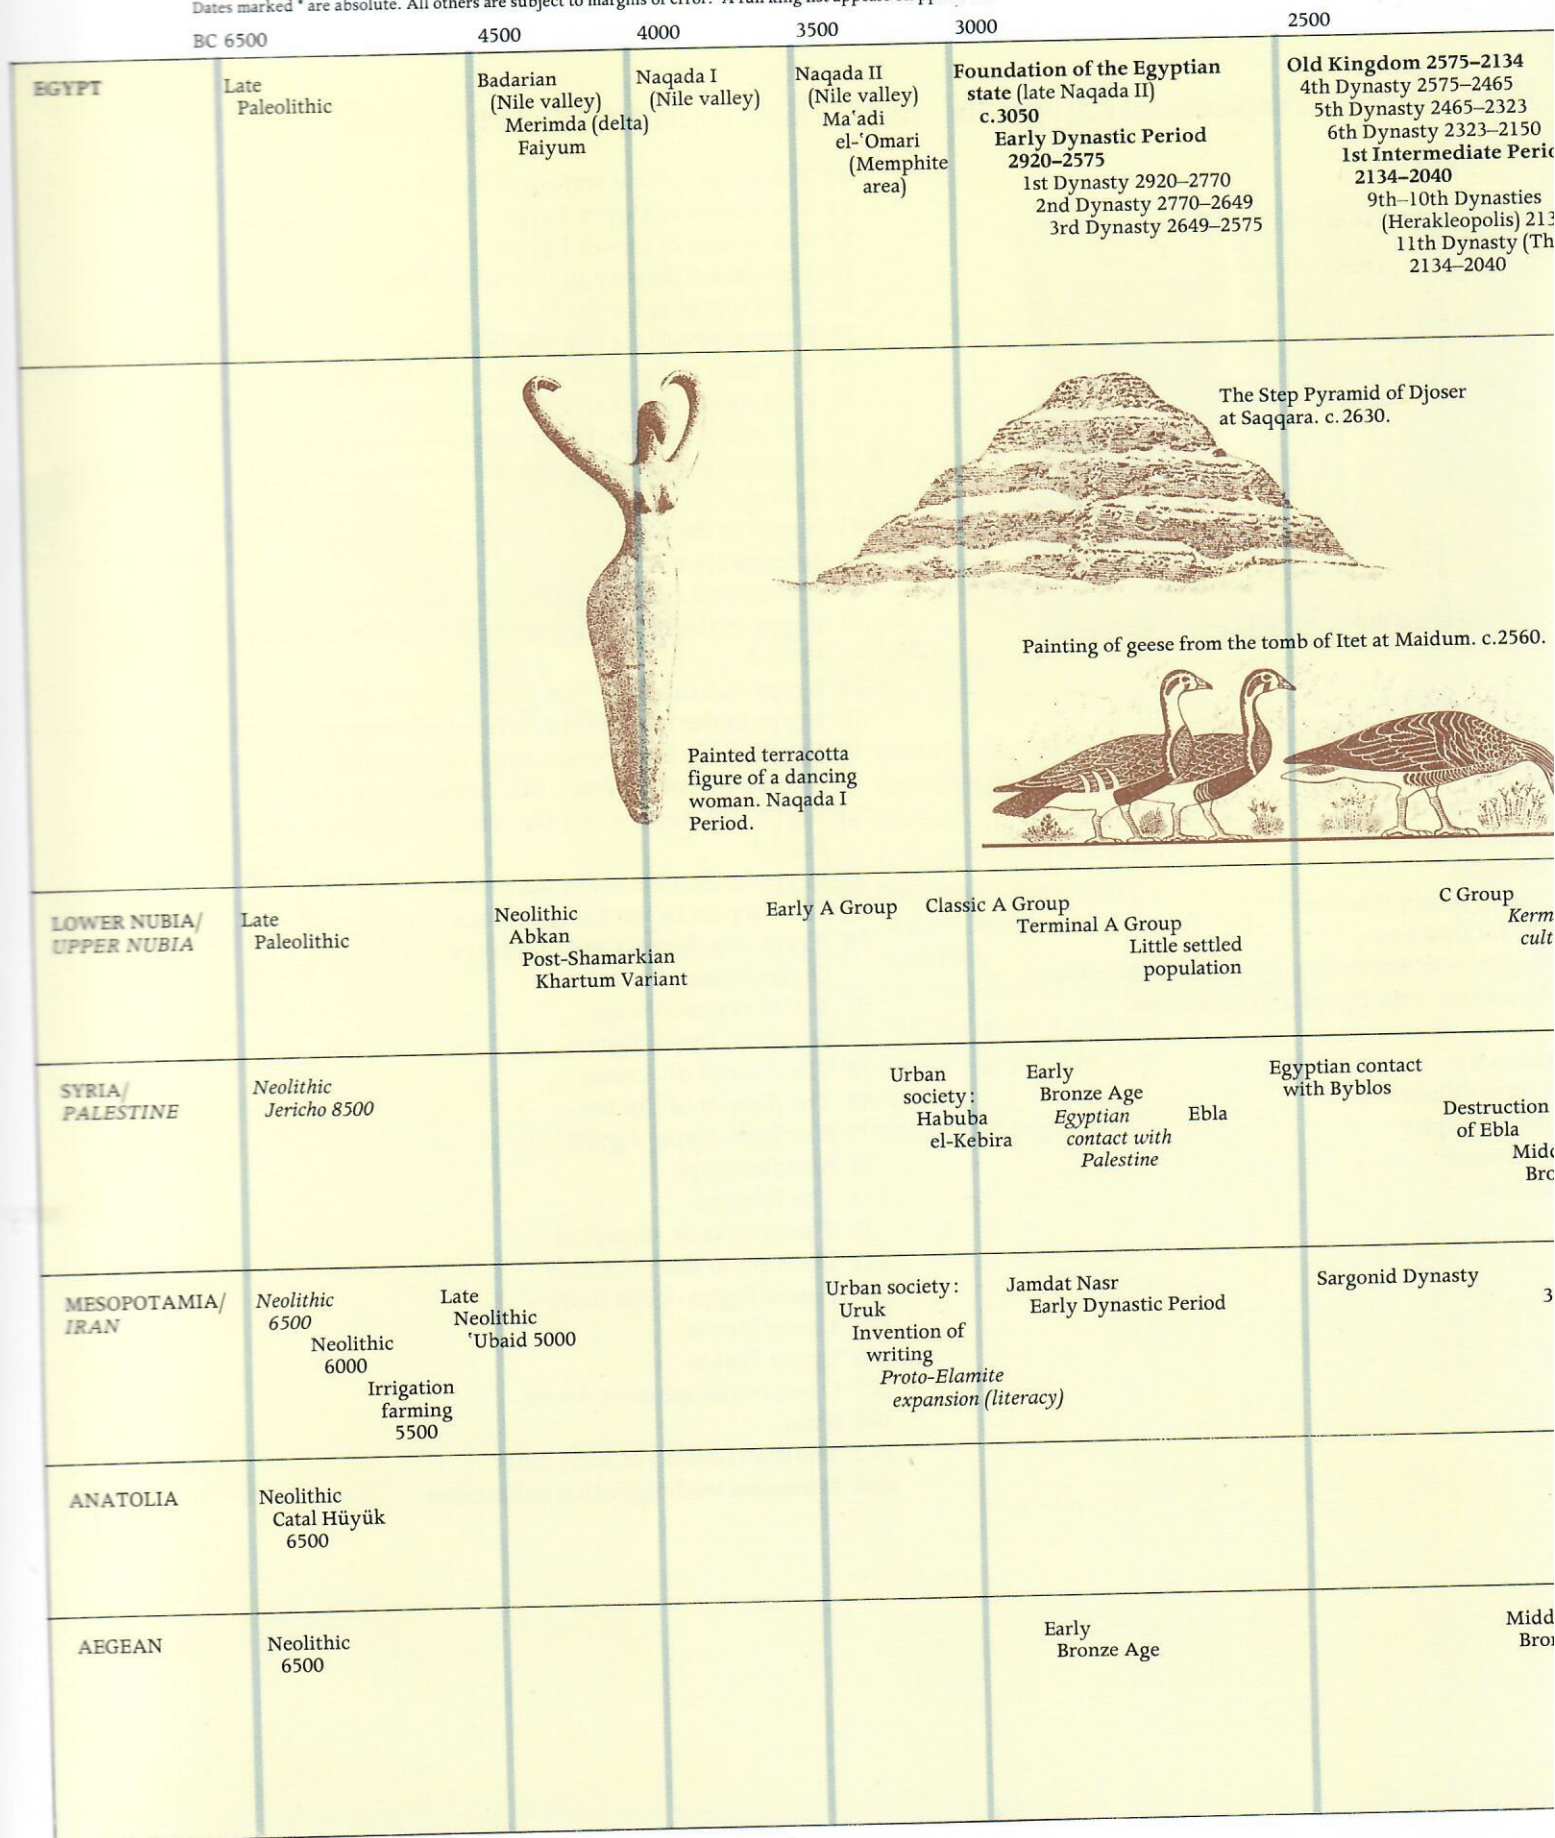 Dates marked * are absolute. All others are subject to margins of error.
BC 6500 4500 4000 3500 3000 2500
EGYPT
Late
Paleolithic
Badarian
(Nile valley)
Merimda (delta)
Faiyum
Naqada I
(Nile valley)
Naqada II
(Nile valley)
Maʿadi
el-ʿOmari
(Memphite
area)
Foundation of the Egyptian
state (late Naqada II)
c.3050
Early Dynastic Period
2920–2575
1st Dynasty 2920–2770
2nd Dynasty 2770–2649
3rd Dynasty 2649–2575
Old Kingdom 2575–2134
4th Dynasty 2575–2465
5th Dynasty 2465–2323
6th Dynasty 2323–2150
1st Intermediate Perio
2134–2040
9th–10th Dynasties
(Herakleopolis) 213
11th Dynasty (Th
2134–2040
The Step Pyramid of Djoser
at Saqqara. c.2630.
Painting of geese from the tomb of Itet at Maidum. c.2560.
Painted terracotta
figure of a dancing
woman. Naqada I
Period.
LOWER NUBIA/
UPPER NUBIA
Late
Paleolithic
Neolithic
Abkan
Post-Shamarkian
Khartum Variant
Early A Group
Classic A Group
Terminal A Group
Little settled
population
C Group
Kerm
cult
SYRIA/
PALESTINE
Neolithic
Jericho 8500
Urban
society:
Habuba
el-Kebira
Early
Bronze Age
Egyptian
contact with
Palestine
Ebla
Egyptian contact
with Byblos
Destruction
of Ebla
Midd
Bro
MESOPOTAMIA/
IRAN
Neolithic
6500
Neolithic
6000
Irrigation
farming
5500
Late
Neolithic
ʿUbaid 5000
Urban society:
Uruk
Invention of
writing
Proto-Elamite
expansion (literacy)
Jamdat Nasr
Early Dynastic Period
Sargonid Dynasty
3
ANATOLIA
Neolithic
Catal Hüyük
6500
AEGEAN
Neolithic
6500
Early
Bronze Age
Midd
Bron